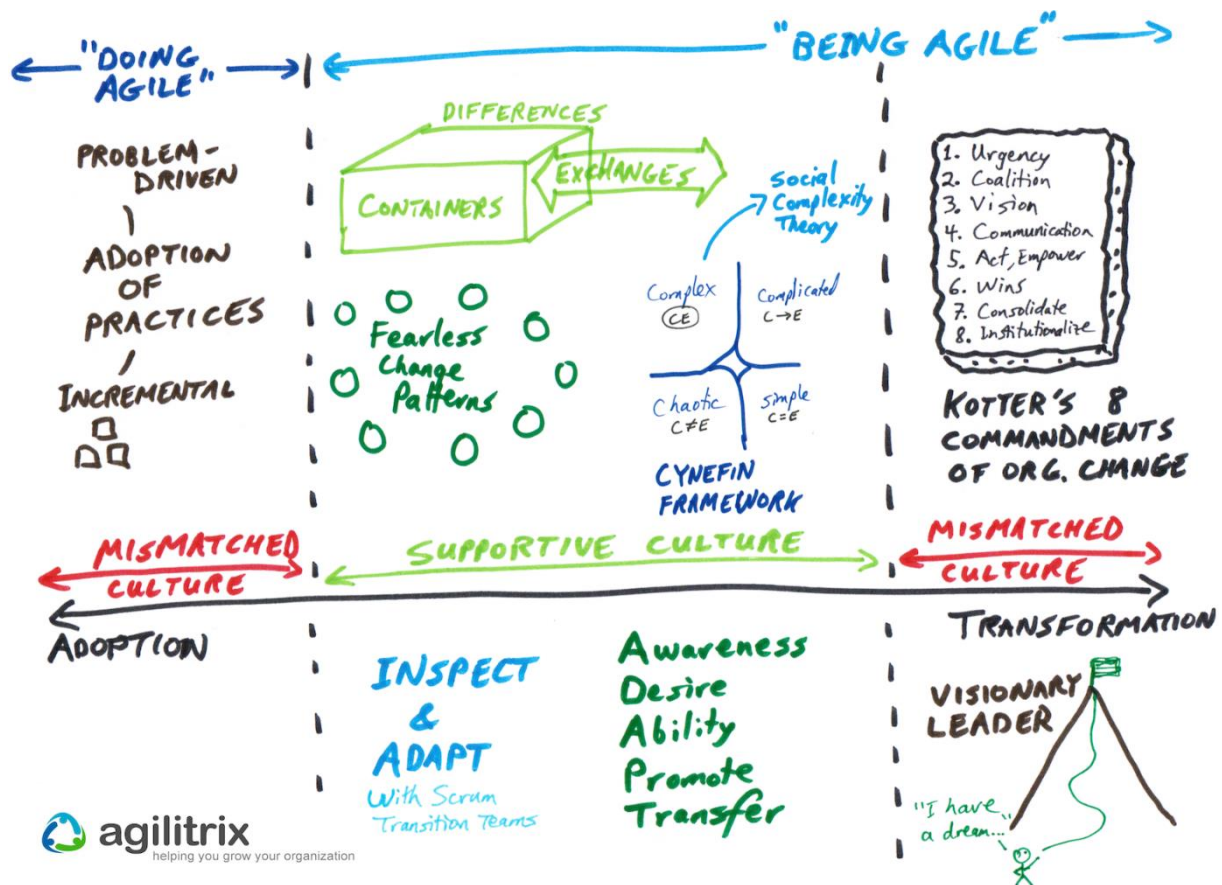 "DOING
AGILE"
"BEING AGILE"
PROBLEM-
DRIVEN
ADOPTION
OF
PRACTICES
INCREMENTAL
DIFFERENCES
EXCHANGES
CONTAINERS
Social
Complexity
Theory
Fearless
Change
Patterns
Complex
CE
Complicated
C→E
Chaotic
C≠E
Simple
C=E
CYNEFIN
FRAMEWORK
1. Urgency
2. Coalition
3. Vision
4. Communication
5. Act, Empower
6. Wins
7. Consolidate
8. Institutionalize
KOTTER'S 8
COMMANDMENTS
OF ORG. CHANGE
MISMATCHED
CULTURE
SUPPORTIVE CULTURE
MISMATCHED
CULTURE
ADOPTION
TRANSFORMATION
INSPECT
&
ADAPT
With Scrum
Transition Teams
Awareness
Desire
Ability
Promote
Transfer
VISIONARY
LEADER
"I have
a dream..."
agilitrix
helping you grow your organization